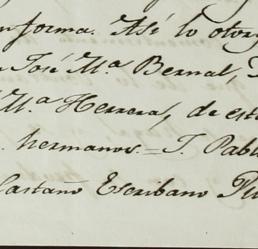 forma. Así lo otorg
José Mª Bernal,
Mª Herrera, de est
hermanos.= T. Pabl
Castaño Escribano Pu